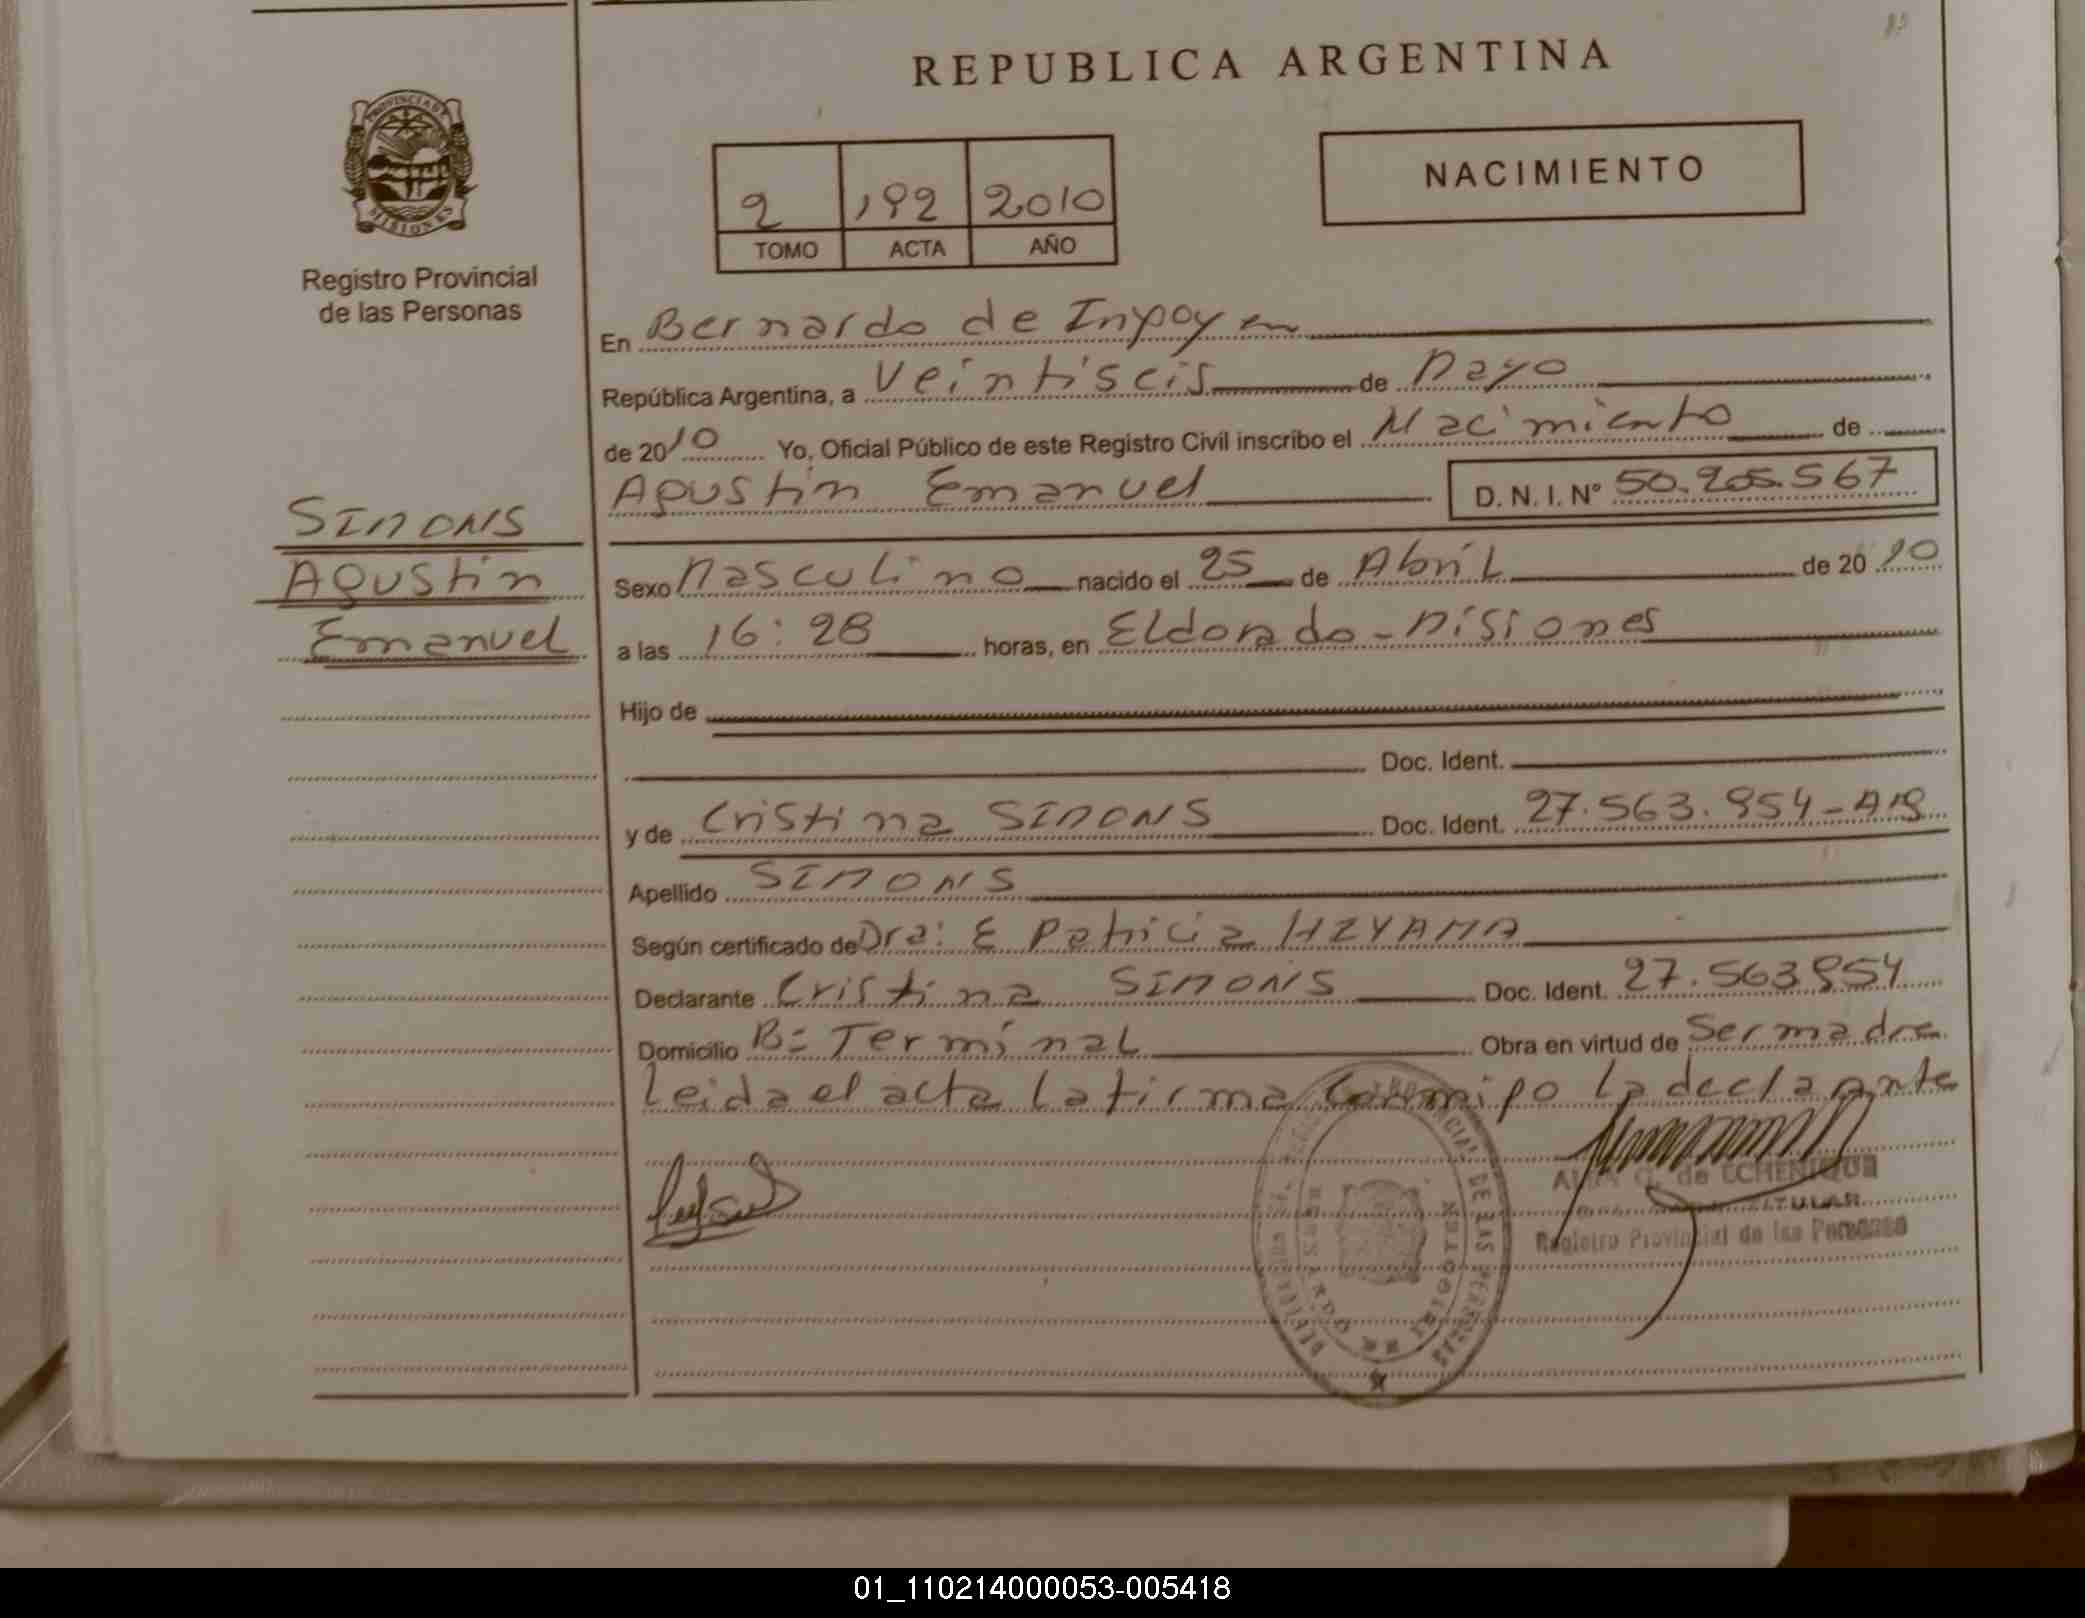 REPUBLICA ARGENTINA
PROVINCIA DE
MISIONES
Registro Provincial
de las Personas
2 192 2010
TOMO ACTA AÑO
NACIMIENTO
En Bernardo de Irigoyen
República Argentina, a Veintiseis de Mayo
de 2010 Yo, Oficial Público de este Registro Civil inscribo el Nacimiento de
Agustin Emanuel D. N. I. Nº 50.205.567
SIMONS
Agustin
Emanuel
Sexo Masculino nacido el 25 de Abril de 2010
a las 16:28 horas, en Eldorado - Misiones
Hijo de
Doc. Ident.
y de Cristina SIMONS Doc. Ident. 27.563.954-
Apellido SIMONS
Según certificado de Dra: E Patricia
Declarante Cristina SIMONS Doc. Ident. 27.563954
Domicilio Bº Terminal Obra en virtud de Ser madre
Leida el acta la firma conmigo la declarante
de ECHENIQUE
TITULAR
Registro Provincial de las Personas
PROVINCIAL DE LAS PERSONAS
BERNARDO DE IRIGOYEN
01_110214000053-005418